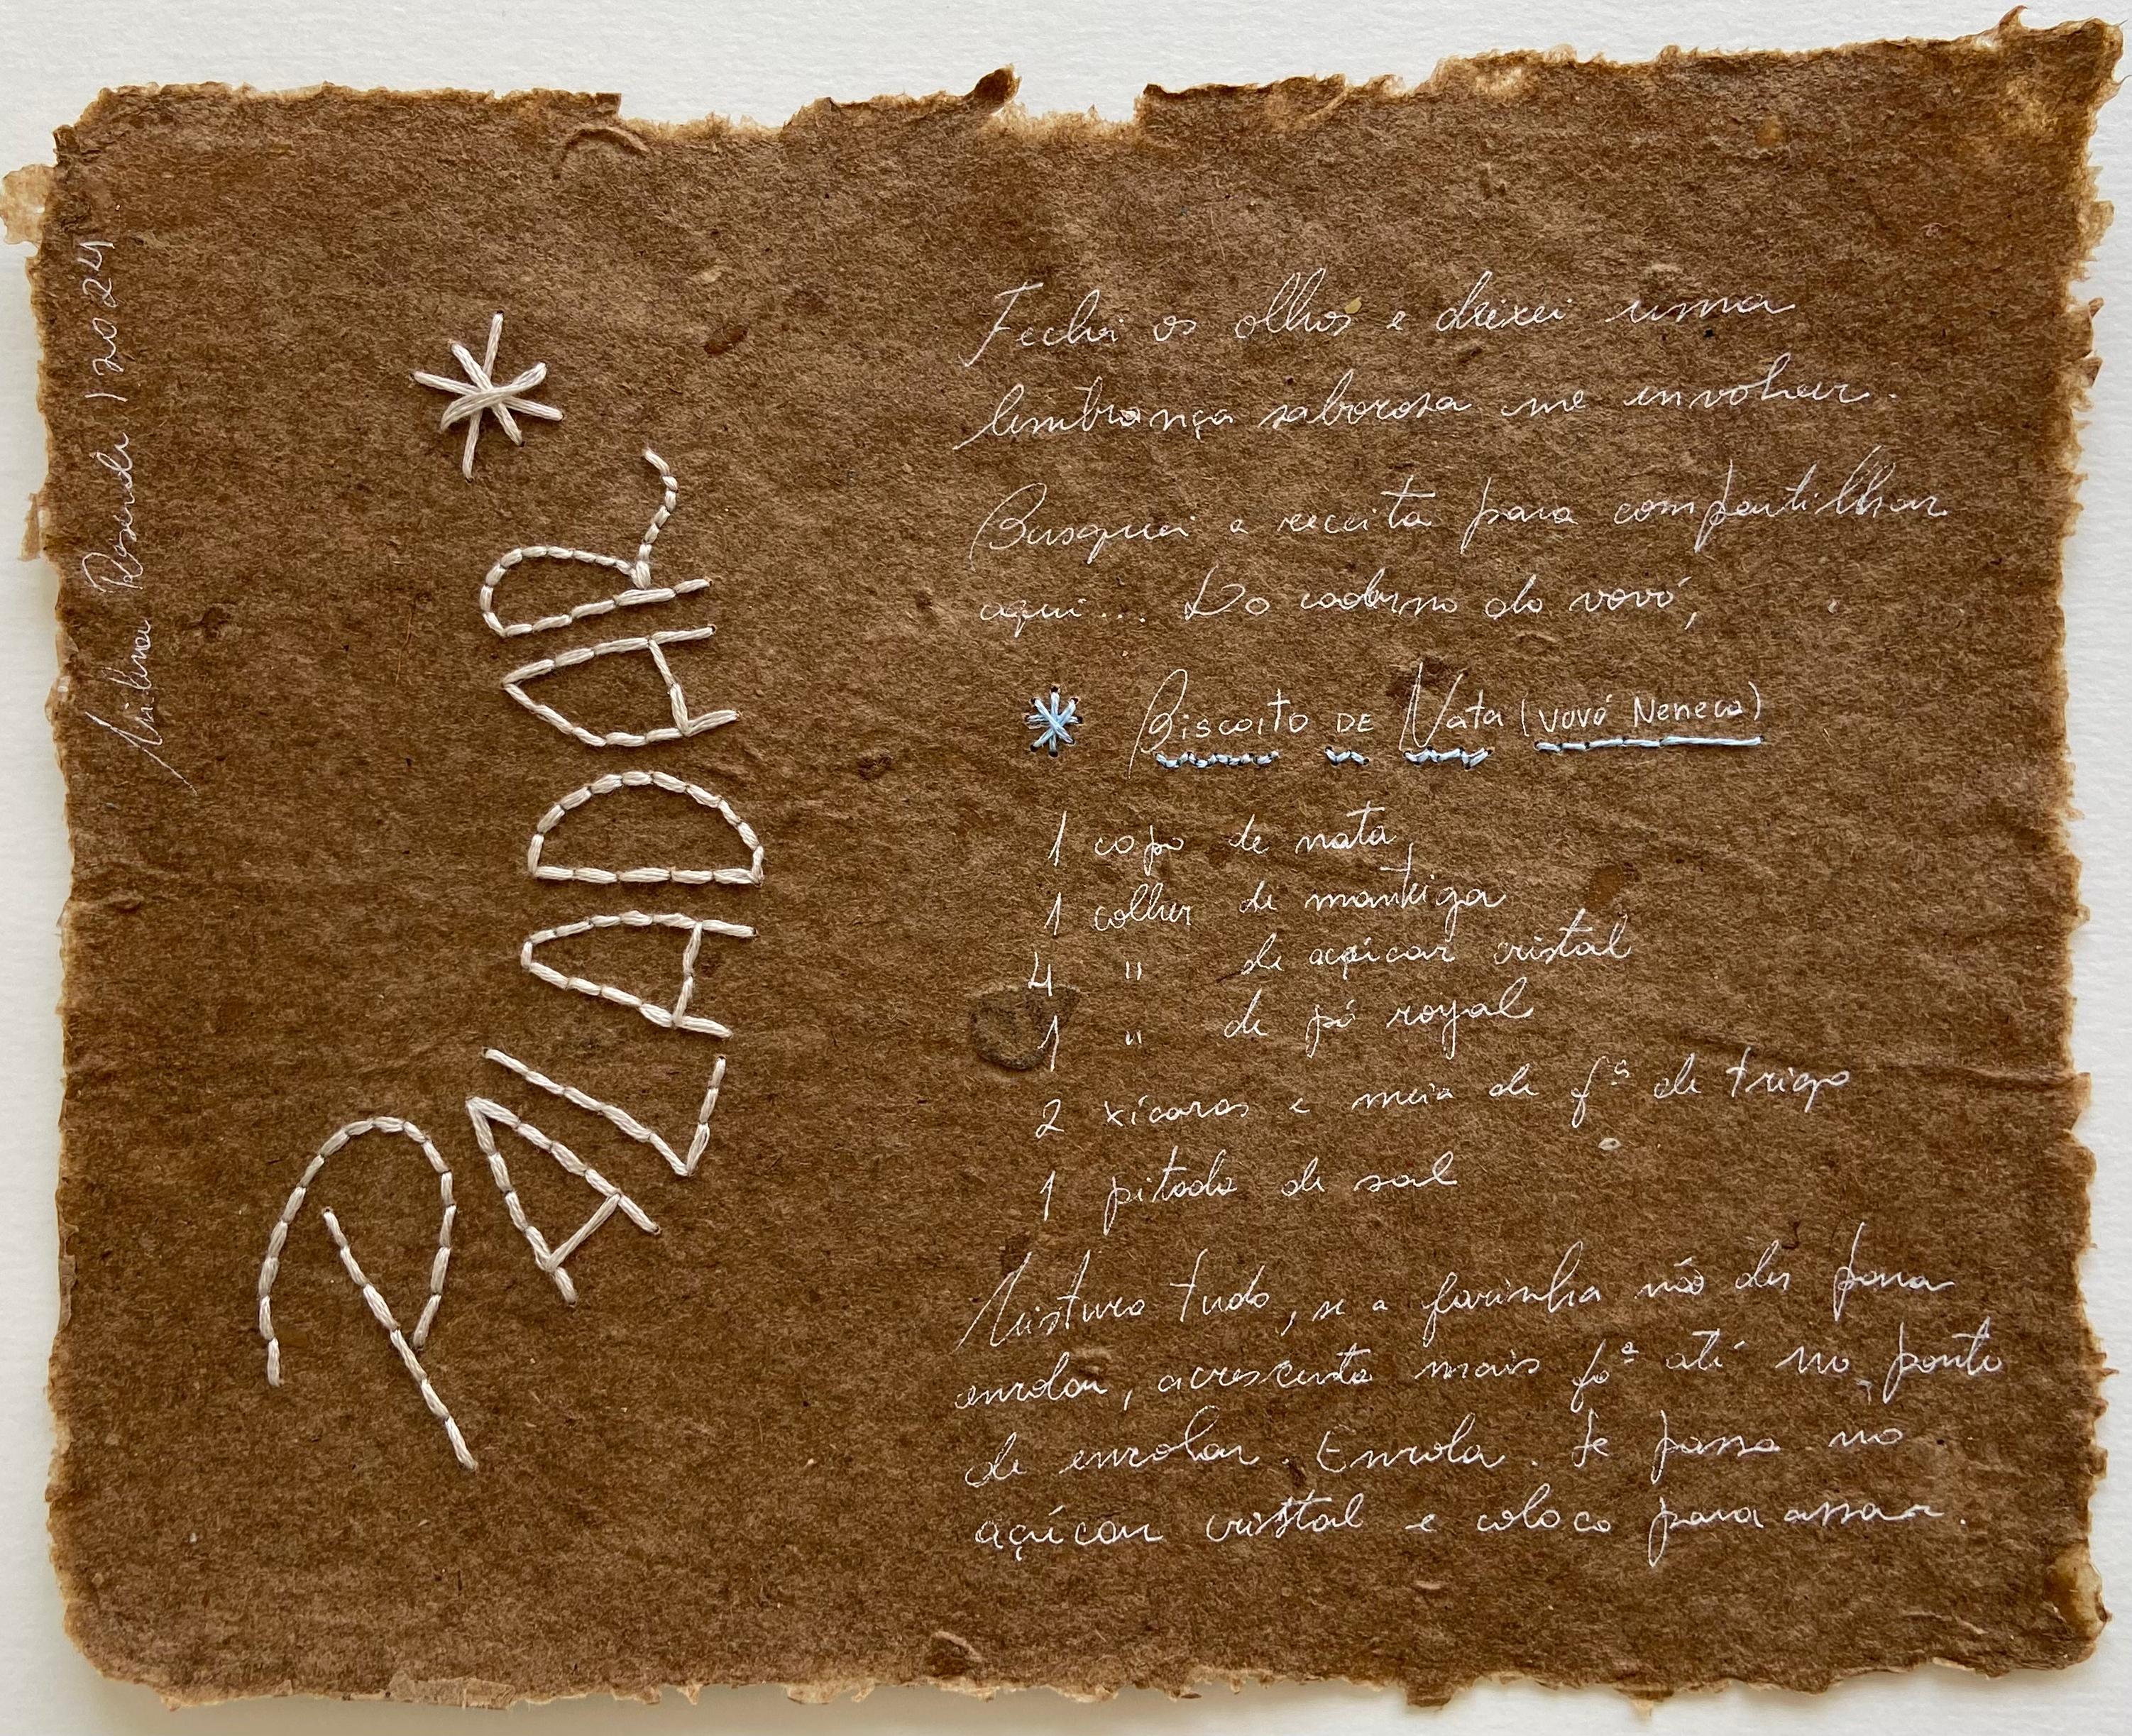 Milena Resende | 2024
PALADAR
Fechei os olhos e deixei uma
lembrança saborosa me envolver.
Busquei a receita para compartilhar
aqui... Do caderno da vovó,
* Biscoito DE Nata (vovó Neneca)
1 copo de nata
1 colher de manteiga
4 " de açúcar cristal
1 " de pó royal
2 xícaras e meia de fª de trigo
1 pitada de sal
Mistura tudo, se a farinha não der para
enrolar, acrescenta mais fª até no ponto
de enrolar. Enrola. Se passa no
açúcar cristal e coloca para assar.